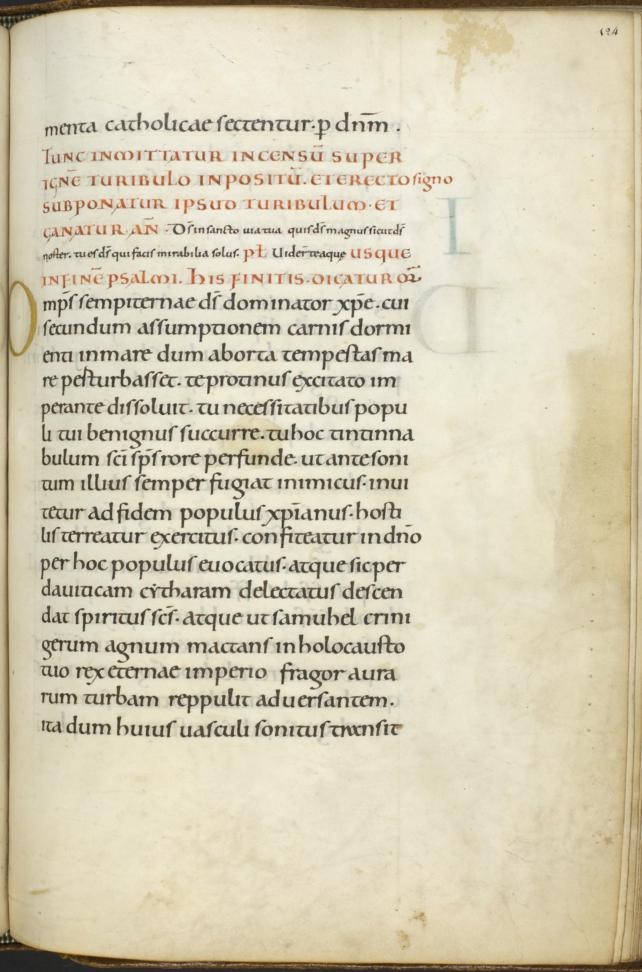 124
menta catholicae sectentur. p dn̄m.
TUNC INMITTATUR INCENSŪ SUPER
IGNĒ TURIBULO INPOSITŪ. ET ERECTO signo
SUBPONATUR IPSUD TURIBULUM. ET
CANATUR AN̄. D̄s in sancto uia tua quis d̄s magnus sicut d̄s
noster. tu es d̄s qui facis mirabilia solus. pł. Uider te aque USQUE
IN FINĒ PSALMI. HIS FINITIS. DICATUR OR̄
Omp̄s sempiternae d̄s dominator xp̄e. cui
secundum assumptionem carnis dormi
enti in mare dum aborta tempestas ma
re pesturbasset. te protinus excitato im
perante dissoluit. tu necessitatibus popu
li tui benignus succurre. tu hoc tintinna
bulum sc̄i sp̄s rore perfunde. ut ante soni
tum illius semper fugiat inimicus. inui
tetur ad fidem populus xp̄ianus. hosti
lis terreatur exercitus. confiteatur in dn̄o
per hoc populus euocatus. atque sic per
dauiticam cytharam delectatus descen
dat spiritus sc̄s. atque ut samuhel crini
gerum agnum mactans in holocausto
tuo rex eternae imperio fragor aura
rum turbam reppulit aduersantem.
ita dum huius uasculi sonitus transit